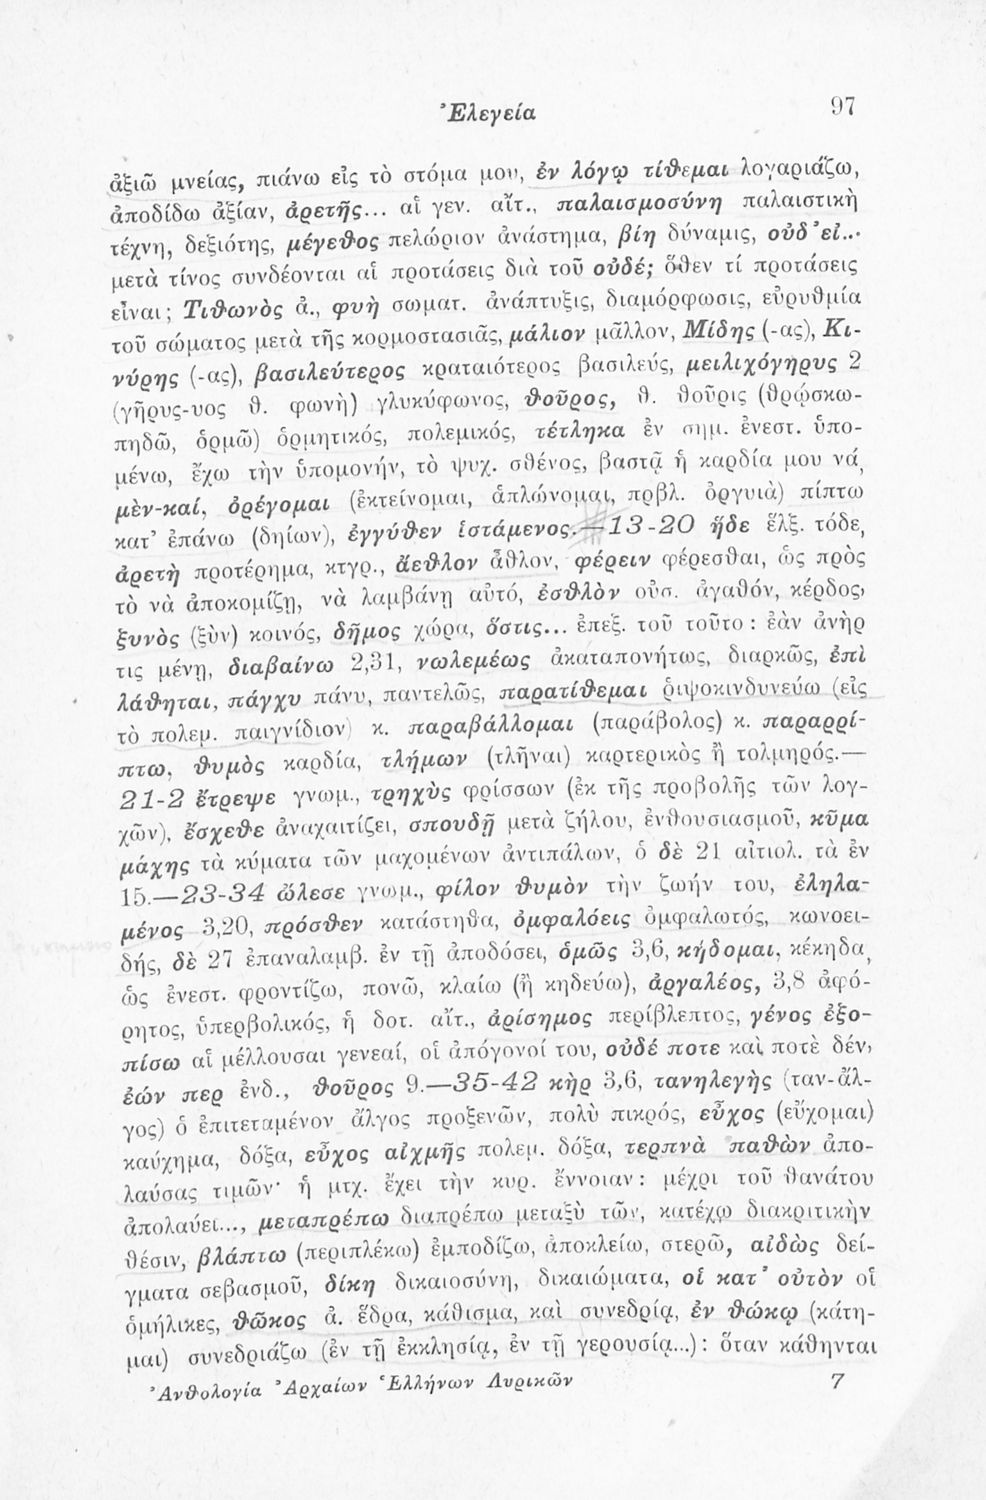 Ἐλεγεία 97
ἀξιῶ μνείας, πιάνω εἰς τὸ στόμα μου, ἐν λόγῳ τίθεμαι λογαριάζω,
ἀποδίδω ἀξίαν, ἀρετῆς... αἱ γεν. αἴτ., παλαισμοσύνη παλαιστικὴ
τέχνη, δεξιότης, μέγεθος πελώριον ἀνάστημα, βίη δύναμις, οὐδ’εἰ...
μετὰ τίνος συνδέονται αἱ προτάσεις διὰ τοῦ οὐδέ; ὅθεν τί προτάσεις
εἶναι; Τιθωνὸς ἀ., φυὴ σωματ. ἀνάπτυξις, διαμόρφωσις, εὐρυθμία
τοῦ σώματος μετὰ τῆς κορμοστασιᾶς, μάλιον μᾶλλον, Μίδης (-ας), Κι-
νύρης (-ας), βασιλεύτερος κραταιότερος βασιλεύς, μειλιχόγηρυς 2
(γῆρυς-υος θ. φωνὴ) γλυκύφωνος, θοῦρος, θ. θοῦρις (θρῴσκω-
πηδῶ, ὁρμῶ) ὁρμητικός, πολεμικός, τέτληκα ἐν σημ. ἐνεστ. ὑπο-
μένω, ἔχω τὴν ὑπομονήν, τὸ ψυχ. σθένος, βαστᾷ ἡ καρδία μου νά,
μὲν-καί, ὀρέγομαι (ἐκτείνομαι, ἁπλώνομαι, πρβλ. ὀργυιὰ) πίπτω
κατ’ ἐπάνω (δηίων), ἐγγύθεν ἱστάμενος.—13-20 ἥδε ἕλξ. τόδε,
ἀρετὴ προτέρημα, κτγρ., ἄεθλον ἆθλον, φέρειν φέρεσθαι, ὡς πρὸς
τὸ νὰ ἀποκομίζῃ, νὰ λαμβάνῃ αὐτό, ἐσθλὸν οὐσ. ἀγαθόν, κέρδος,
ξυνὸς (ξὺν) κοινός, δῆμος χώρα, ὅστις... ἐπεξ. τοῦ τοῦτο: ἐὰν ἀνὴρ
τις μένῃ, διαβαίνω 2,31, νωλεμέως ἀκαταπονήτως, διαρκῶς, ἐπὶ
λάθηται, πάγχυ πάνυ, παντελῶς, παρατίθεμαι ῥιψοκινδυνεύω (εἰς
τὸ πολεμ. παιγνίδιον) κ. παραβάλλομαι (παράβολος) κ. παραρρί-
πτω, θυμὸς καρδία, τλήμων (τλῆναι) καρτερικὸς ἢ τολμηρός.—
21-2 ἔτρεψε γνωμ., τρηχὺς φρίσσων (ἐκ τῆς προβολῆς τῶν λογ-
χῶν), ἔσχεθε ἀναχαιτίζει, σπουδῇ μετὰ ζήλου, ἐνθουσιασμοῦ, κῦμα
μάχης τὰ κύματα τῶν μαχομένων ἀντιπάλων, ὁ δὲ 21 αἰτιολ. τὰ ἐν
15.—23-34 ὤλεσε γνωμ., φίλον θυμὸν τὴν ζωήν του, ἐληλα-
μένος 3,20, πρόσθεν κατάστηθα, ὀμφαλόεις ὀμφαλωτός, κωνοει-
δής, δὲ 27 ἐπαναλαμβ. ἐν τῇ ἀποδόσει, ὁμῶς 3,6, κήδομαι, κέκηδα,
ὡς ἐνεστ. φροντίζω, πονῶ, κλαίω (ἢ κηδεύω), ἀργαλέος, 3,8 ἀφό-
ρητος, ὑπερβολικός, ἡ δοτ. αἴτ., ἀρίσημος περίβλεπτος, γένος ἐξο-
πίσω αἱ μέλλουσαι γενεαί, οἱ ἀπόγονοί του, οὐδέ ποτε καὶ ποτὲ δέν,
ἐών περ ἐνδ., θοῦρος 9.—35-42 κὴρ 3,6, τανηλεγὴς (ταν-ἄλ-
γος) ὁ ἐπιτεταμένον ἄλγος προξενῶν, πολὺ πικρός, εὖχος (εὔχομαι)
καύχημα, δόξα, εὖχος αἰχμῆς πολεμ. δόξα, τερπνὰ παθὼν ἀπο-
λαύσας τιμῶν· ἡ μτχ. ἔχει τὴν κυρ. ἔννοιαν: μέχρι τοῦ θανάτου
ἀπολαύει..., μεταπρέπω διαπρέπω μεταξὺ τῶν, κατέχω διακριτικὴν
θέσιν, βλάπτω (περιπλέκω) ἐμποδίζω, ἀποκλείω, στερῶ, αἰδὼς δεί-
γματα σεβασμοῦ, δίκη δικαιοσύνη, δικαιώματα, οἱ κατ’ οὐτὸν οἱ
ὁμήλικες, θῶκος ἀ. ἕδρα, κάθισμα, καὶ συνεδρία, ἐν θώκῳ (κάτη-
μαι) συνεδριάζω (ἐν τῇ ἐκκλησίᾳ, ἐν τῇ γερουσίᾳ...): ὅταν κάθηνται
Ἀνθολογία Ἀρχαίων Ἑλλήνων Λυρικῶν 7